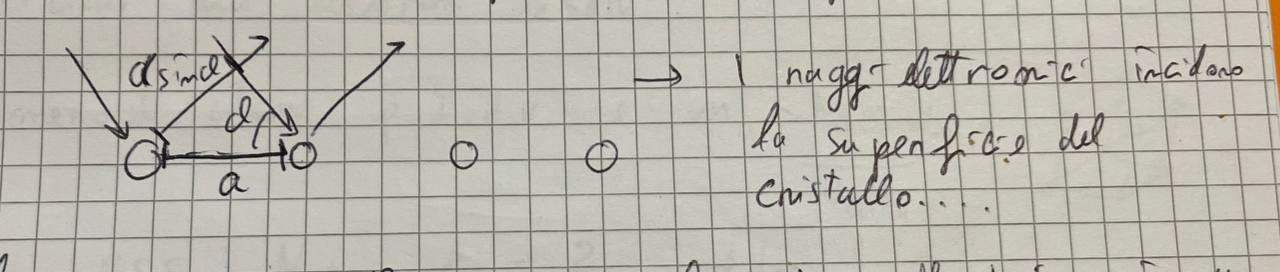 a sinα
α
a
→ I raggi elettronici incidono
la superficie del
cristallo....